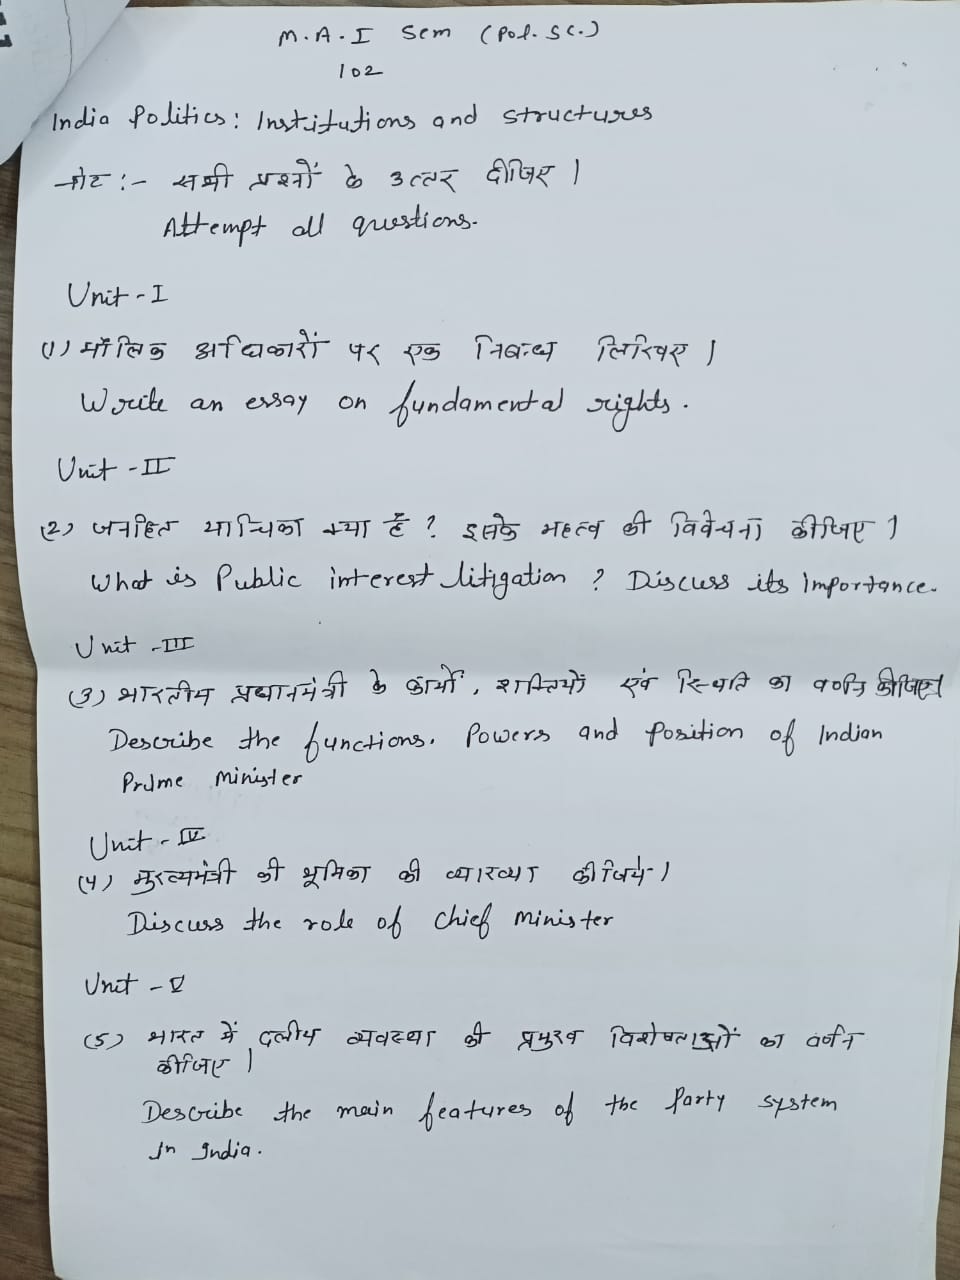 M.A.I Sem (Pol.Sc.)
102
India Politics: Institutions and structures
नोट :- सभी प्रश्नों के उत्तर दीजिए ।
Attempt all questions.
Unit-I
(1) मौलिक अधिकारों पर एक निबन्ध लिखिए ।
Write an essay on fundamental rights.
Unit-II
(2) जनहित याचिका क्या है ? इसके महत्व की विवेचना कीजिए ।
What is Public interest litigation ? Discuss its importance.
Unit-III
(3) भारतीय प्रधानमंत्री के कार्यों, शक्तियों एवं स्थिति का वर्णन कीजिए।
Describe the functions. Powers and Position of Indian
Prime minister
Unit-IV
(4) मुख्यमंत्री की भूमिका की व्याख्या कीजिये।
Discuss the role of Chief minister
Unit-V
(5) भारत में दलीय व्यवस्था की प्रमुख विशेषताओं का वर्णन
कीजिए ।
Describe the main features of the Party system
In India.